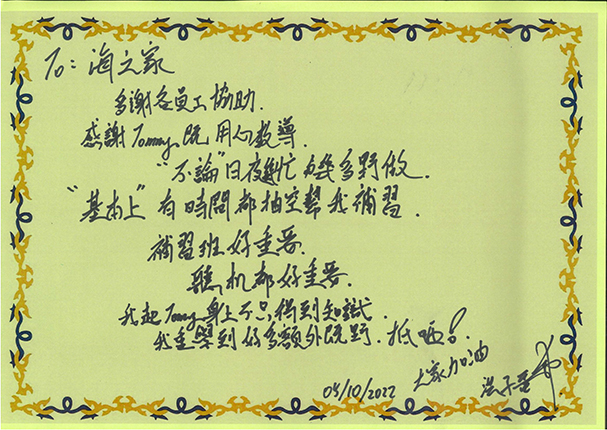 To: 海之家
多謝各員工協助.
感謝 Tommy 既用心教導.
"不論"日夜幾忙 幾多野做.
"基本上"有時間都抽空幫我補習.
補習班好重要
驗机都好重要.
我起 Tommy 身上不只得到知識.
我重學到好多額外既野. 抵晒!
大家加油
05/10/2022